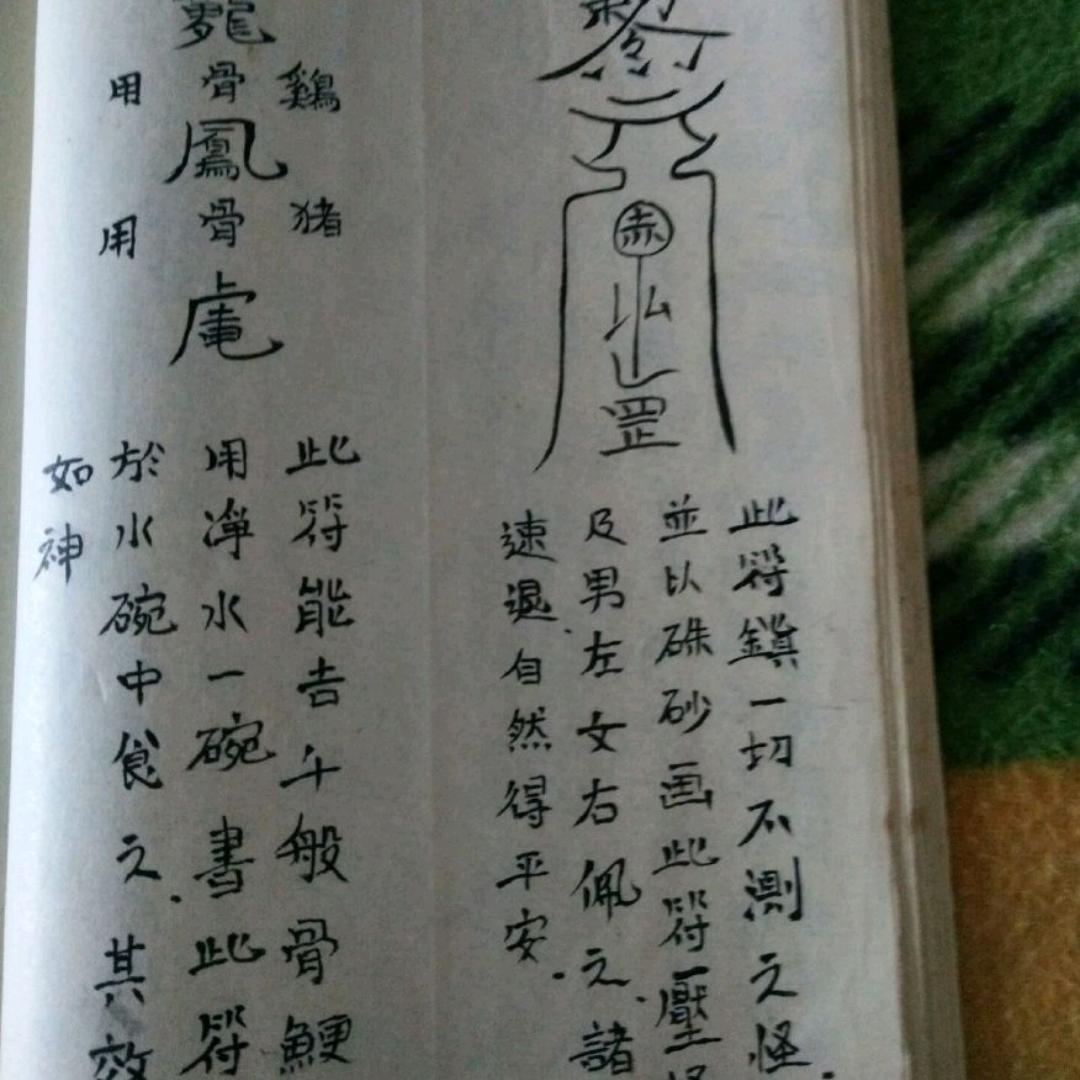 赤
罡
此符鎮一切不測之怪.
並以硃砂画此符壓
及男左女右佩之.諸
速退.自然得平安.
鷄 猪
骨 鳳 骨
用 用
此符能吉千般骨鯁
用淨水一碗書此符
於水碗中食之.其效
如神